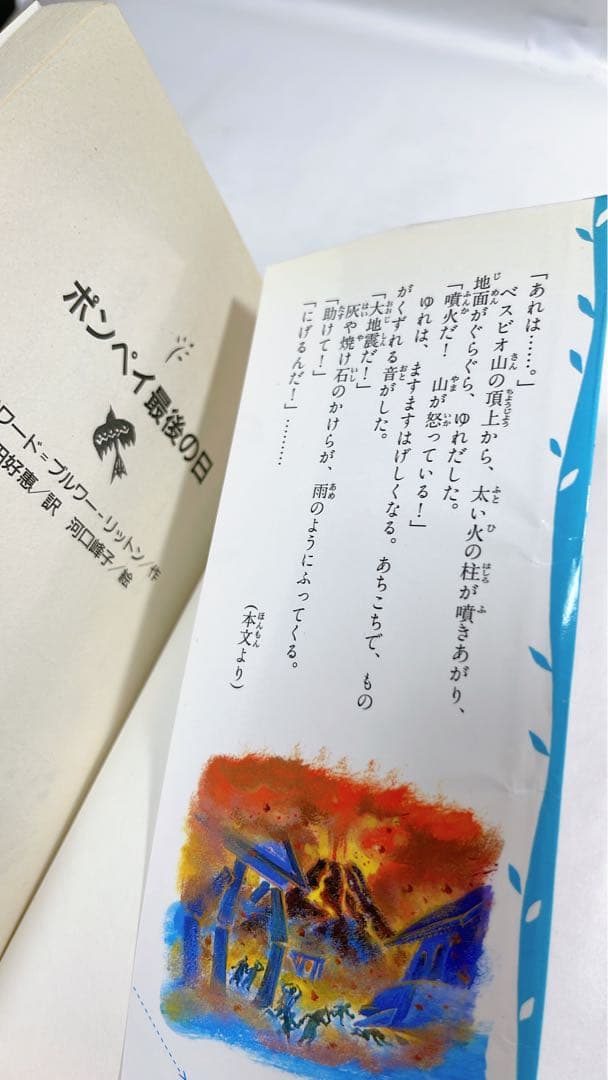 「あれは……。」
ベスビオ山の頂上から、太い火の柱が噴きあがり、
地面がぐらぐら、ゆれだした。
「噴火だ！　山が怒っている！」
ゆれは、ますますはげしくなる。あちこちで、もの
がくずれる音がした。
「大地震だ！」
灰や焼け石のかけらが、雨のようにふってくる。
「助けて！」
「にげるんだ！」………
（本文より）
ポンペイ最後の日
ワード＝ブルワー＝リットン／作
田好惠／訳　河口峰子／絵